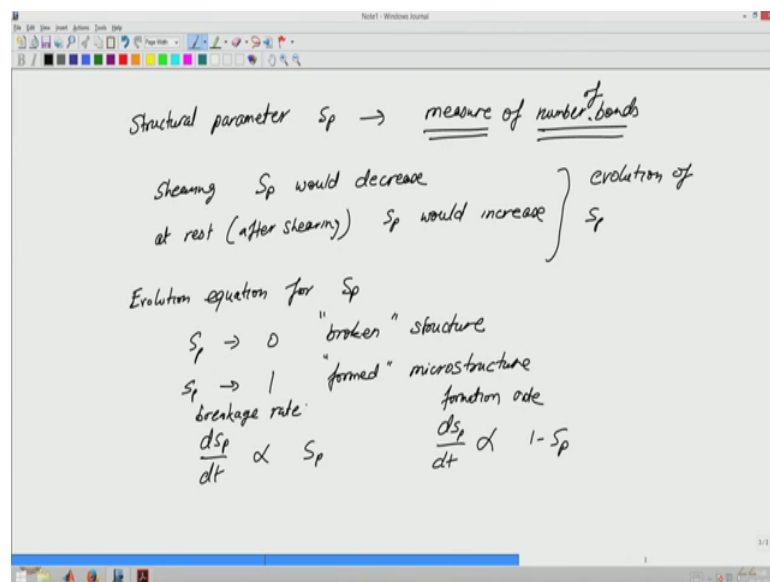 Note1 - Windows Journal
File Edit View Insert Actions Tools Help
Page Width
B I
Structural parameter Sp → measure of number of bonds
Shearing Sp would decrease
at rest (after shearing) Sp would increase
evolution of
Sp
Evolution equation for Sp
Sp → 0 "broken" structure
Sp → 1 "formed" microstructure
breakage rate: formation rate
dSp/dt ∝ Sp dSp/dt ∝ 1-Sp
3/3